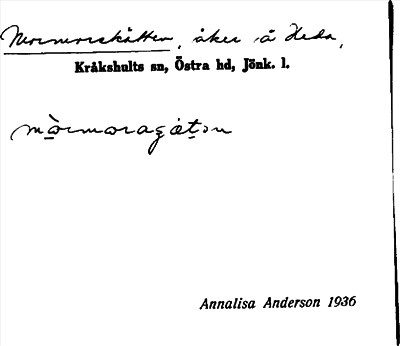 Mormorskåtten, åker å Heda,
Kråkshults sn, Östra hd, Jönk. l.
Annalisa Anderson 1936